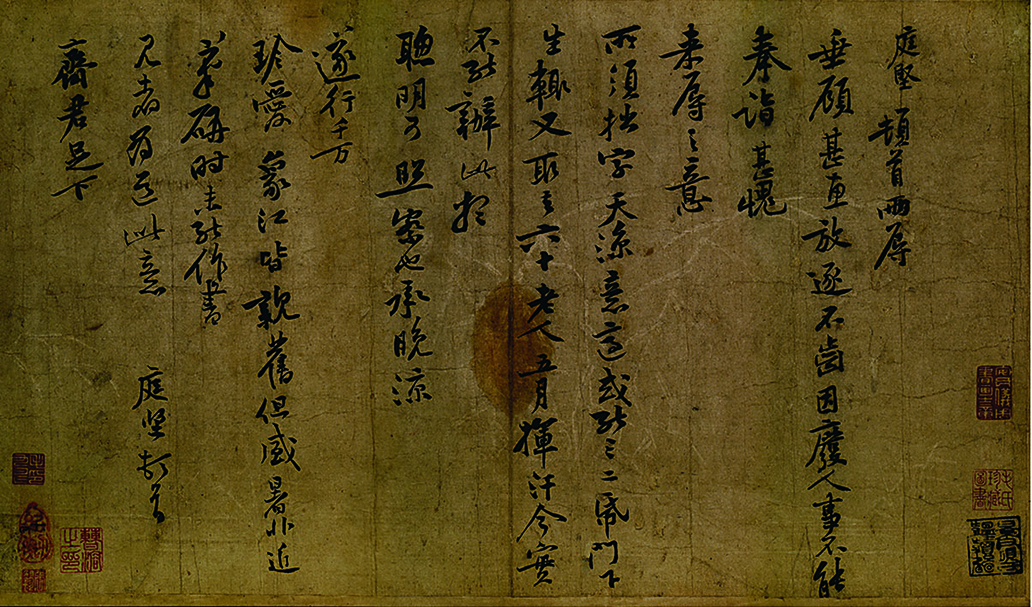 庭堅頓首兩辱
垂顧甚惠放逐不齒因廢人事不能
奉詣甚愧
来辱之意
所須拙字天涼意適或能三二紙門下
生輒又取去六十老人五月揮汗今實
不能辦此想
聰明可照察也承晚涼
遂行千万
珍愛象江皆親舊但盛暑非近
筆研時未能作書
見者為道此意
庭堅頓首
齋君足下